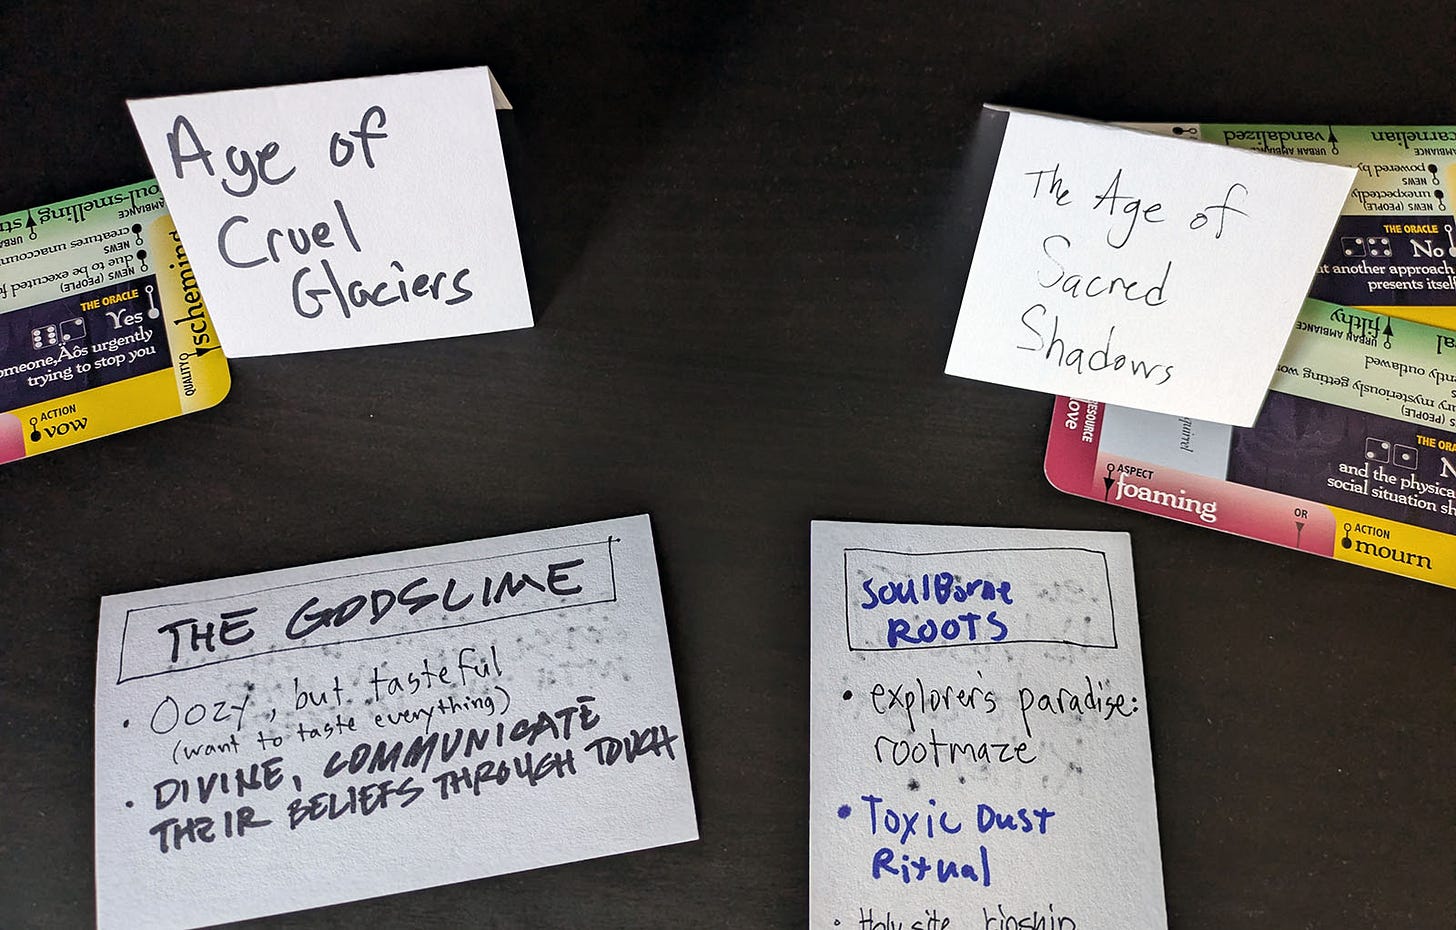 Age of
Cruel
Glaciers
foul-smelling
AMBIANCE
NEWS
creatures
NEWS (PEOPLE)
due to be executed
THE ORACLE
Yes
urgently
trying to stop you
ACTION
vow
QUALITY
scheming
The Age of
Sacred
Shadows
vandalized
URBAN AMBIANCE
carnelian
powered by
NEWS
unexpectedly
NEWS (PEOPLE)
THE ORACLE
No
another approach
presents itself
filthy
URBAN AMBIANCE
outlawed
mysteriously getting
(PEOPLE)
RESOURCE
love
squirrel
and the physical
social situation
ASPECT
foaming
OR
ACTION
mourn
THE GODSLIME
• Oozy, but tasteful
(want to taste everything)
• DIVINE, COMMUNICATE
THEIR BELIEFS THROUGH TOUCH
SoulBorne
ROOTS
• explorer's paradise:
rootmaze
• Toxic Dust
Ritual
• Holy site, kinship